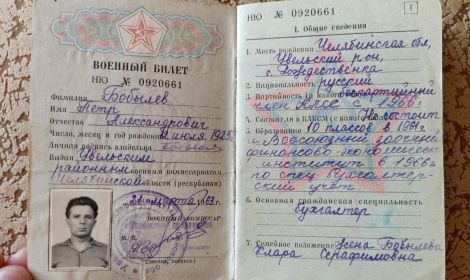 ВОЕННЫЙ БИЛЕТ
НЮ № 0920661
Фамилия Бобылев
Имя Петр
Отчество Александрович
Число, месяц и год рождения июня
Личная подпись владельца
Выдан Увельским
районным военным комиссариатом
Челябинской области (республики)
марта 1963 г.
ВОЕННЫЙ КОМИССАР
М. П.
НЮ № 0920661
1
I. Общие сведения
1. Место рождения Челябинская обл,
Увельский р-он,
с. Рождественка
2. Национальность русский
3. Партийность (с какого года) беспартийный
член КПСС с 1966г
4. Состоит ли в ВЛКСМ (с какого) Не состоит
5. Образование 10 классов в 1961г
Всесоюзный заочный
финансово-экономический
институт в 1966г
по спец. бухгалтер-
ский учёт
6. Основная гражданская специальность
бухгалтер
7. Семейное положение жена Бобылева
Клара Серафимовна